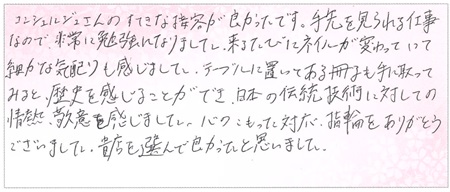 コンシェルジュさんのすてきな接客が良かったです。手先を見られる仕事
なので、非常に勉強になりました。来るたびにネイルが変わっていて
細かな気配りも感じました。テーブルに置いてある冊子も手に取って
みると、歴史を感じることができ、日本の伝統技術に対しての
情熱、敬意を感じました。心のこもった対応、指輪をありがとう
ございました。貴店を選んで良かったと思いました。